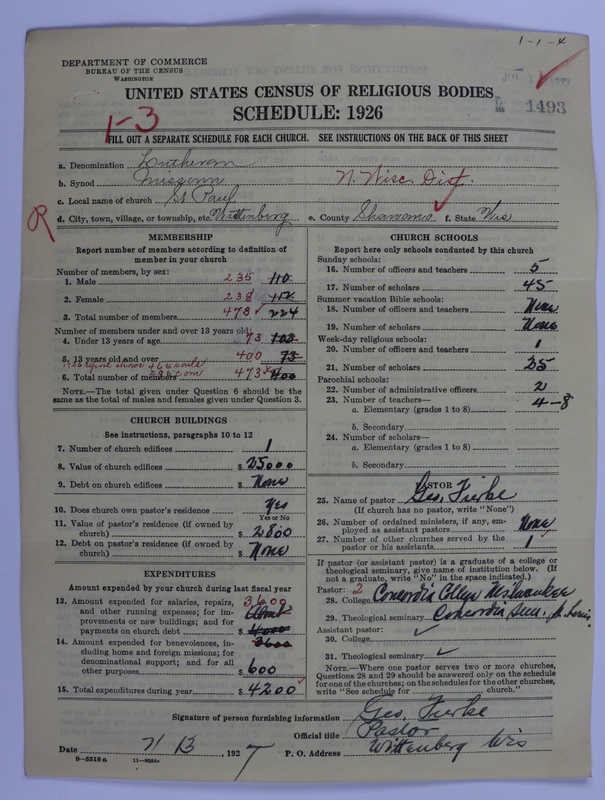 1-1-4
DEPARTMENT OF COMMERCE
BUREAU OF THE CENSUS
WASHINGTON
UNITED STATES CENSUS OF RELIGIOUS BODIES
SCHEDULE: 1926
1493
1-3
FILL OUT A SEPARATE SCHEDULE FOR EACH CHURCH. SEE INSTRUCTIONS ON THE BACK OF THIS SHEET
a. Denomination Lutheran
b. Synod Missouri N. Wisc. Dist.
c. Local name of church St. Paul
R
d. City, town, village, or township, etc. Wittenberg e. County Shawano f. State Wis
MEMBERSHIP
Report number of members according to definition of
member in your church
Number of members, by sex:
1. Male 235 110
2. Female 238
3. Total number of members 473 224
Number of members under and over 13 years old:
4. Under 13 years of age 73 103
5. 13 years old and over 400 73
6. Total number of members 473 400
NOTE.—The total given under Question 6 should be the
same as the total of males and females given under Question 3.
CHURCH BUILDINGS
See instructions, paragraphs 10 to 12
7. Number of church edifices 1
8. Value of church edifices $ 25000
9. Debt on church edifices $ None
10. Does church own pastor's residence Yes
Yes or No
11. Value of pastor's residence (if owned by
church) $ 2800
12. Debt on pastor's residence (if owned by
church) $ None
EXPENDITURES
Amount expended by your church during last fiscal year
13. Amount expended for salaries, repairs, 3600
and other running expenses; for im-
provements or new buildings; and for
payments on church debt $
14. Amount expended for benevolences, in- 3600
cluding home and foreign missions; for
denominational support; and for all
other purposes $ 600
15. Total expenditures during year $ 4200
CHURCH SCHOOLS
Report here only schools conducted by this church
Sunday schools:
16. Number of officers and teachers 5
17. Number of scholars 45
Summer vacation Bible schools:
18. Number of officers and teachers None
19. Number of scholars None
Week-day religious schools:
20. Number of officers and teachers 1
21. Number of scholars 25
Parochial schools:
22. Number of administrative officers 2
23. Number of teachers— 4-8
a. Elementary (grades 1 to 8)
b. Secondary
24. Number of scholars—
a. Elementary (grades 1 to 8)
b. Secondary
PASTOR
25. Name of pastor Geo. Fierke
(If church has no pastor, write "None")
26. Number of ordained ministers, if any, em-
ployed as assistant pastors None
27. Number of other churches served by the
pastor or his assistants 1
If pastor (or assistant pastor) is a graduate of a college or
theological seminary, give name of institution below. (If
not a graduate, write "No" in the space indicated.)
Pastor: 2
28. College Concordia College Milwaukee
29. Theological seminary Concordia Sem. St. Louis
Assistant pastor:
30. College
31. Theological seminary
NOTE.—Where one pastor serves two or more churches,
Questions 28 and 29 should be answered only on the schedule
for one of the churches; on the schedules for the other churches,
write "See schedule for church."
Signature of person furnishing information Geo. Fierke
Official title Pastor
Date 7/13, 1927 P. O. Address Wittenberg Wis
8-5518 a